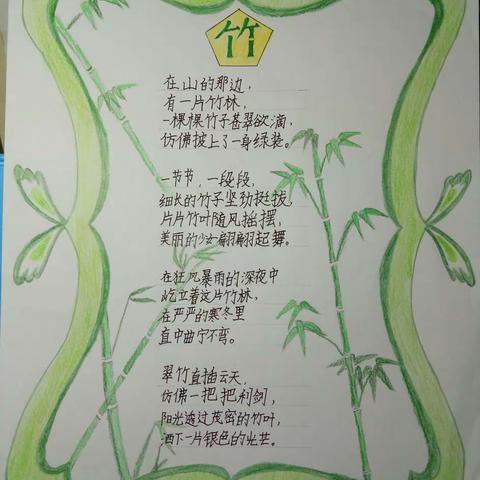 竹
在山的那边，
有一片竹林，
一棵棵竹子甚翠欲滴，
仿佛披上了一身绿装。
一节节，一段段，
细长的竹子坚劲挺拔，
片片竹叶随风摇摆，
美丽的少女翩翩起舞。
在狂风暴雨的深夜中
屹立着这片竹林，
在严严的寒冬里
直中曲宁不弯。
翠竹直插云天，
仿佛一把把利剑，
阳光透过茂密的竹叶，
洒下一片银色的光芒。